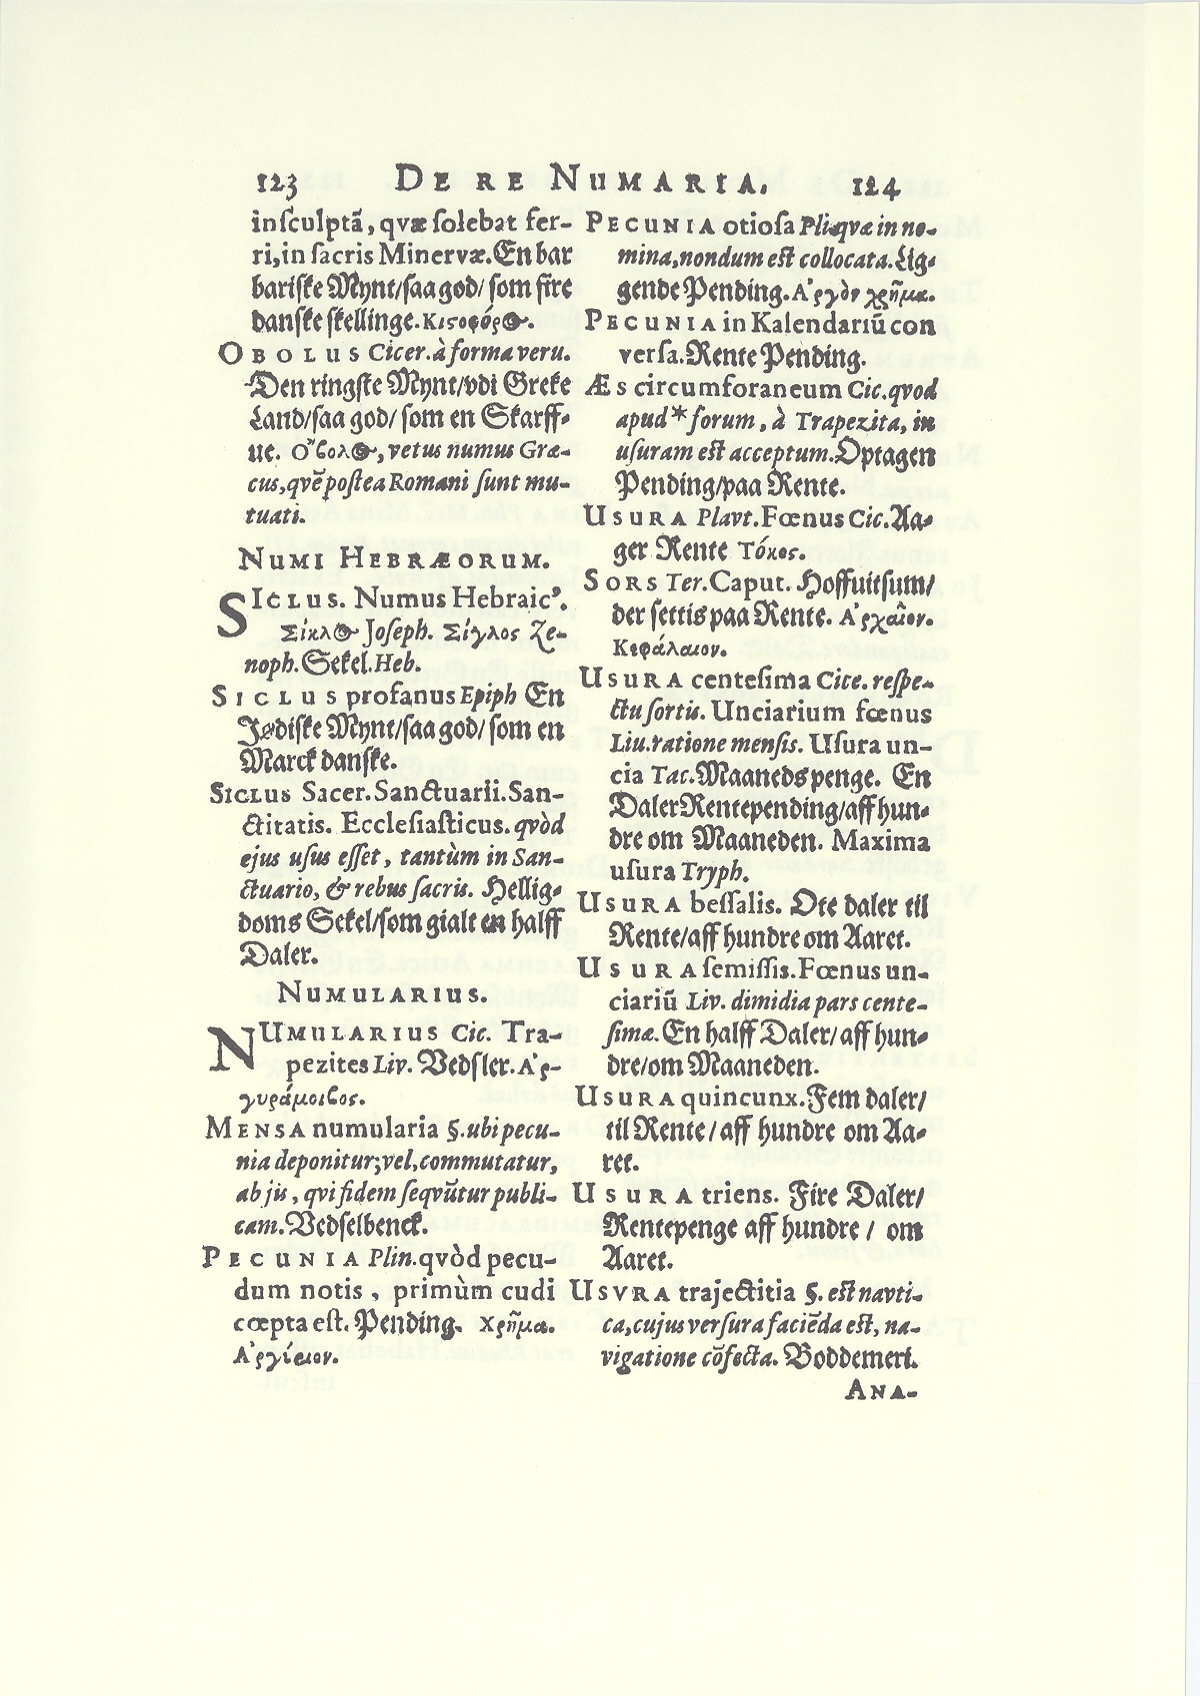 123 DE RE NUMARIA. 124
insculptã, qvæ solebat fer-
ri, in sacris Minervæ. En bar
bariske Mynt/saa god/som fire
danske skellinge. Κιϛοφόρος.
OBOLUS Cicer. à forma veru.
Den ringste Mynt/vdi Greke
Land/saa god/som en Skarff-
ue. Ὀβολος, vetus numus Græ-
cus, qvẽ postea Romani sunt mu-
tuati.
NUMI HEBRÆORUM.
SICLUS. Numus Hebraicꝰ.
Σίκλος Joseph. Σίγλος Ze-
noph. Sekel. Heb.
SICLUS profanus Epiph En
Jødiske Mynt/saa god/som en
Marck danske.
SICLUS Sacer. Sanctuarii. San-
ctitatis. Ecclesiasticus. qvòd
ejus usus esset, tantùm in San-
ctuario, & rebus sacris. Hellig-
doms Sekel/som gialt en halff
Daler.
NUMULARIUS.
NUMULARIUS Cic. Tra-
pezites Liv. Vedsler. Ἀρ-
γυράμοιβος.
MENSA numularia §. ubi pecu-
nia deponitur, vel, commutatur,
ab jis, qvi fidem seqvũtur publi-
cam. Vedselbenck.
PECUNIA Plin. qvòd pecu-
dum notis, primùm cudi
cœpta est. Pending. Χρῆμα.
Ἀργύριον.
PECUNIA otiosa Pli. qvæ in no-
mina, nondum est collocata. Lig-
gende Pending. Ἀργὸν χρῆμα.
PECUNIA in Kalendariũ con
versa. Rente Pending.
ÆS circumforaneum Cic. qvod
apud * forum, à Trapezita, in
usuram est acceptum. Optagen
Pending/paa Rente.
USURA Plavt. Fœnus Cic. Aa-
ger Rente Τόκος.
SORS Ter. Caput. Hoffuitsum/
der settis paa Rente. Ἀρχαῖον.
Κεφάλαιον.
USURA centesima Cice. respe-
ctu sortis. Unciarium fœnus
Liu. ratione mensis. Usura un-
cia Tac. Maaneds penge. En
Daler Rentepending/aff hun-
dre om Maaneden. Maxima
usura Tryph.
USURA bessalis. Ote daler til
Rente/aff hundre om Aaret.
USURA semissis. Fœnus un-
ciariũ Liv. dimidia pars cente-
simæ. En halff Daler/aff hun-
dre/om Maaneden.
USURA quincunx. Fem daler/
til Rente/aff hundre om Aa-
ret.
USURA triens. Fire Daler/
Rentepenge aff hundre/om
Aaret.
USVRA trajectitia §. est navti-
ca, cujus versura faciẽda est, na-
vigatione cõfecta. Boddemeri.
ANA-